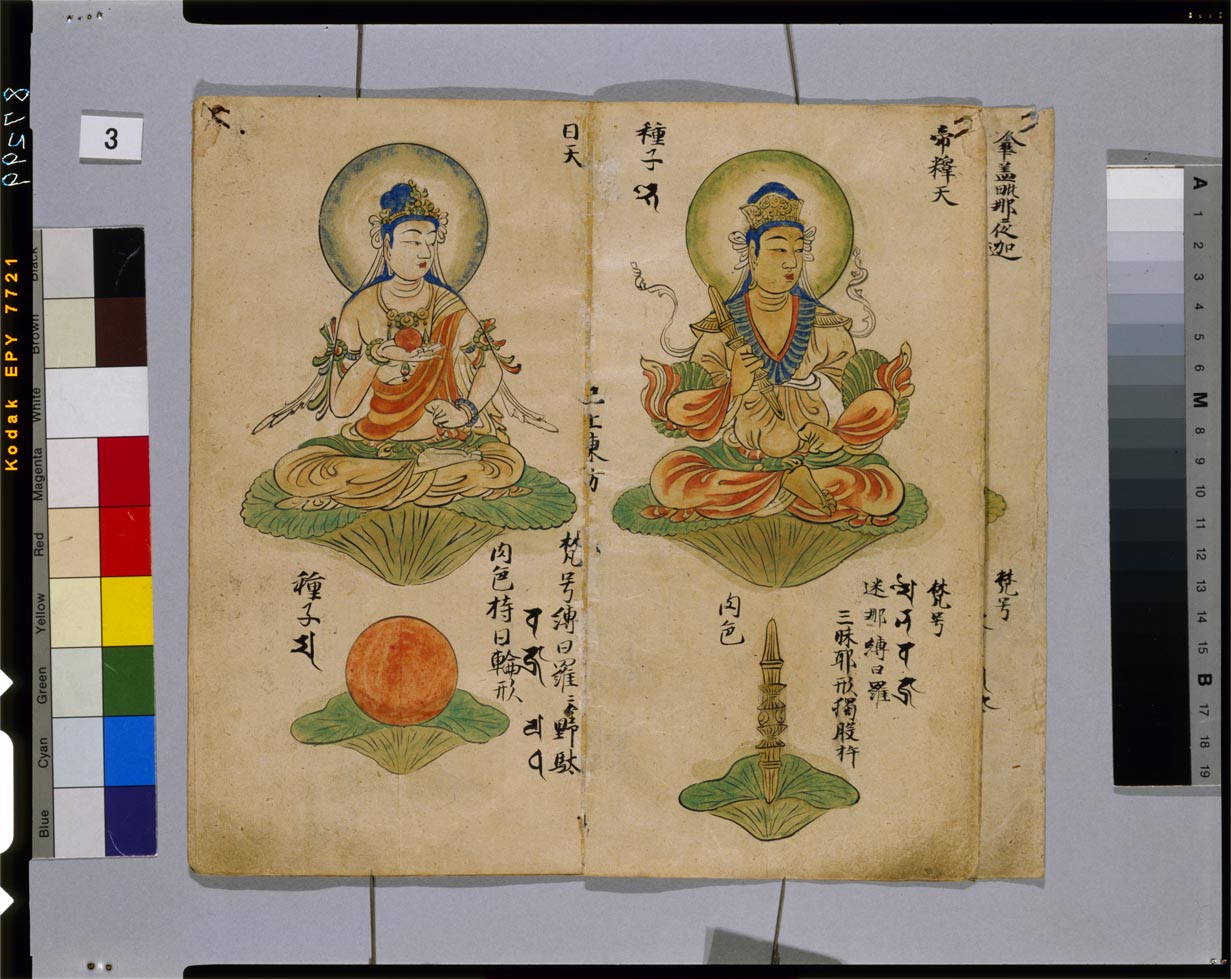 3
Kodak EPY 7721
Black
Brown
White
Magenta
Red
Yellow
Green
Cyan
Blue
A
1
2
3
4
5
6
M
8
9
10
11
12
13
14
15
B
17
18
19
傘盖毗那夜迦
梵号
帝釋天
種子
梵号
迷那縛日羅
三昧耶形獨股杵
肉色
已上東方
日天
梵号縛日羅二合野馱
肉色持日輪形
種子